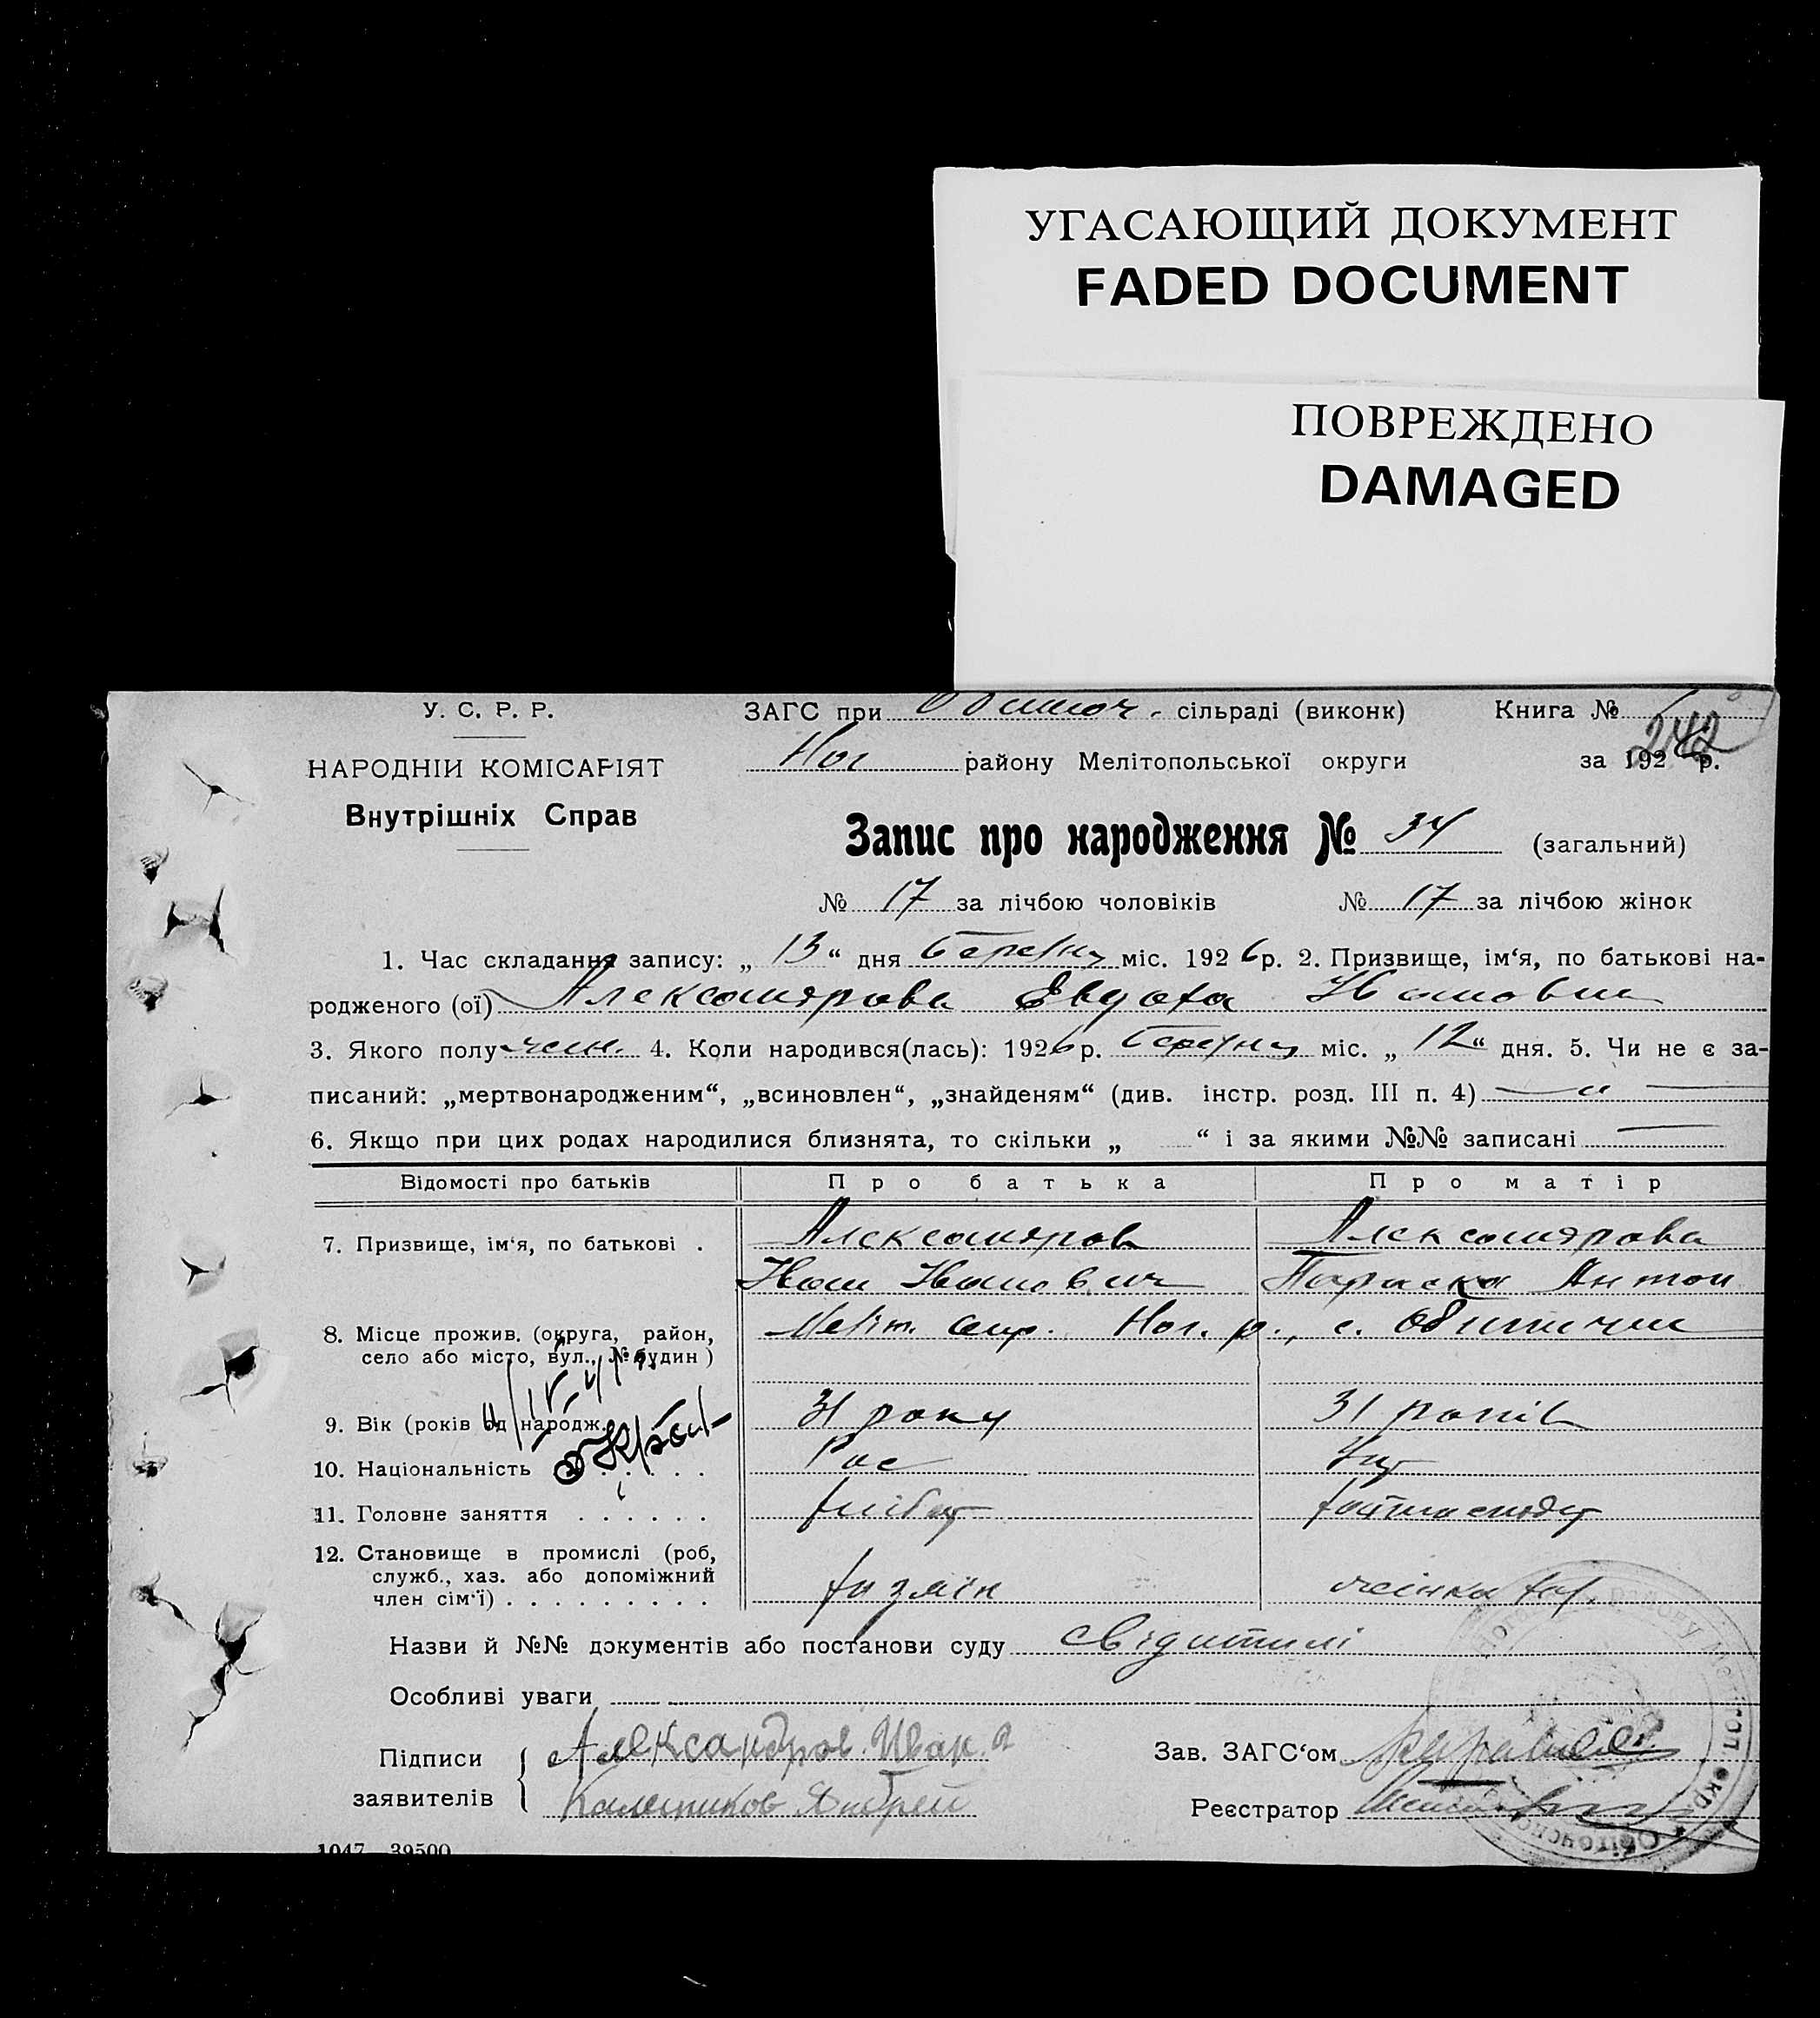 УГАСАЮЩИЙ ДОКУМЕНТ
FADED DOCUMENT
ПОВРЕЖДЕНО
DAMAGED
У. С. Р. Р.
ЗАГС при Обиточ. сільраді (виконк)
Книга №
НАРОДНІЙ КОМІСАРІЯТ
Ног района Мелітопольської округи
242
за 1926 р.
Внутрішніх Справ
Запис про народження № 34 (загальний)
№ 17 за лічбою чоловіків № 17 за лічбою жінок
1. Час складання запису: „ 13 “ дня березня міс. 1926 р. 2. Призвище, ім‘я, по батькові на-
родженого (ої) Александрова Евдоха Ивановна
3. Якого полу жін. 4. Коли народився(лась): 1926 р. березня міс. „ 12 “ дня. 5. Чи не є за-
писаний: „мертвонародженим“, „всиновлен“, „знайденям“ (див. інстр. розд. III п. 4)
6. Якщо при цих родах народилися близнята, то скільки „ “ і за якими №№ записані
Відомості про батьків
Про батька
Про матір
7. Призвище, ім‘я, по батькові .
Александров
Александрова
Иван Иванович
Параска Антон
8. Місце прожив. (округа, район,
село або місто, вул., № будин)
Меліт. окр. Ног. р., с. Обиточне
9. Вік (років од народж.
31 року
31 років
10. Національність
Рос
Укр
11. Головне заняття . . . . . .
хлібор
хатнье
12. Становище в промислі (роб,
служб., хаз. або допоміжний
член сім‘ї) . . . . . . . . .
хазяїн
жінка хаз.
Назви й №№ документів або постанови суду свідитилі
Особливі уваги
Підписи
заявителів
Александров Иван
Калетников Андрей
Зав. ЗАГС‘ом
Реєстратор
1047 39500